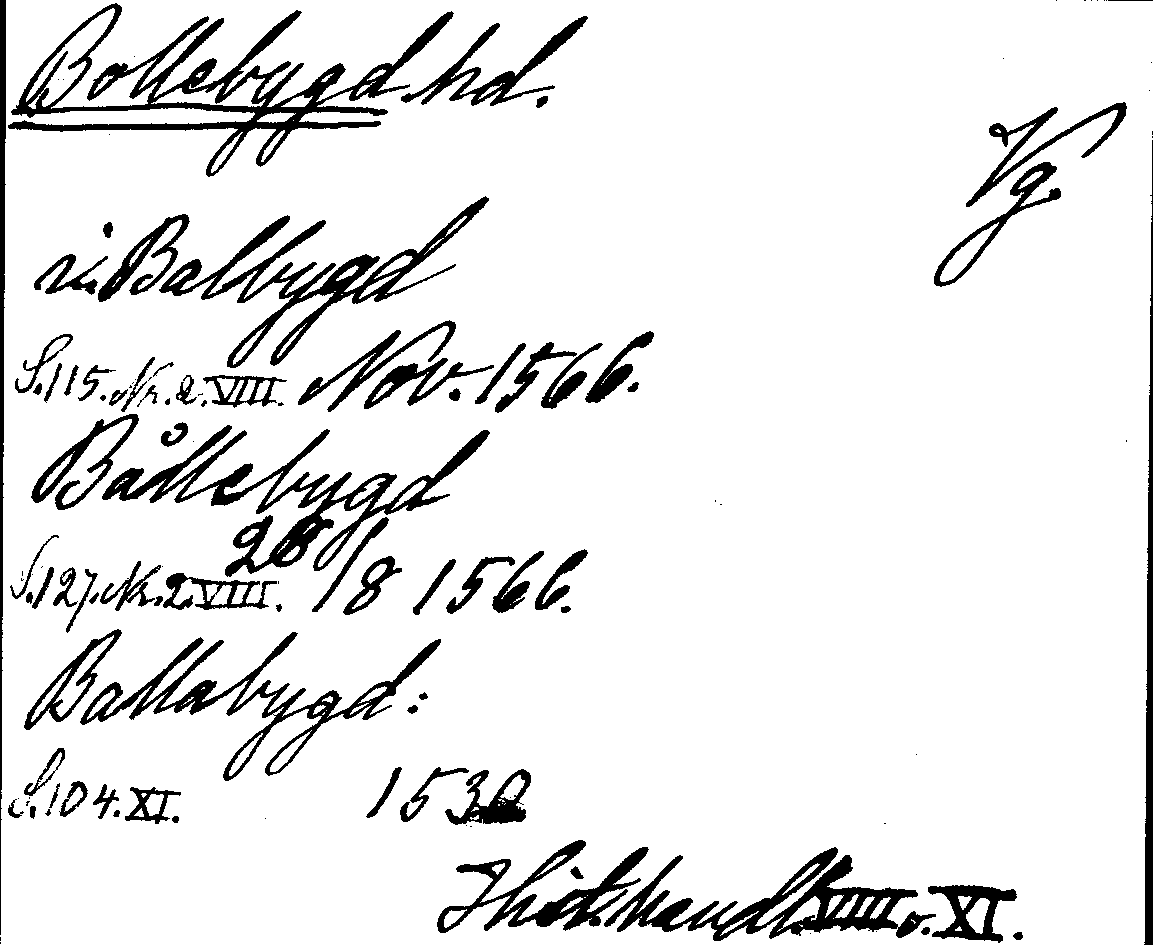 Bollebygd hd.
Vg.
i Balbygd
S.115. Nr. 2. VIII. Nov. 1566.
Bållebygd
S.127. Nr. 2. VIII. 28/8 1566.
Ballabygd:
S.104. XI. 1530
Hist. handl. VIII o. XI.